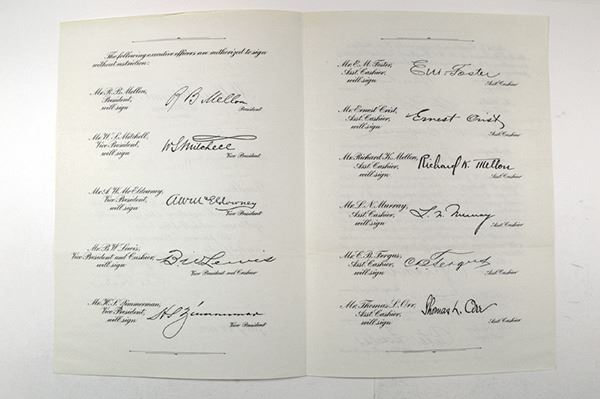 The following executive officers are authorized to sign
without restriction:
Mr. R. B. Mellon,
President,
will sign
R B Mellon
President
Mr. W. S. Mitchell,
Vice President,
will sign
W S Mitchell
Vice President
Mr. A. W. McEldowney,
Vice President,
will sign
A W McEldowney
Vice President
Mr. B. W. Lewis,
Vice President and Cashier,
will sign
B W Lewis
Vice President and Cashier
Mr. H. S. Zimmerman,
Vice President,
will sign
H S Zimmerman
Vice President
Mr. E. M. Foster,
Asst. Cashier,
will sign
E M Foster
Asst Cashier
Mr. Ernest Crist,
Asst. Cashier,
will sign
Ernest Crist
Asst Cashier
Mr. Richard K. Mellon,
Asst. Cashier,
will sign
Richard K. Mellon
Asst Cashier
Mr. L. N. Murray,
Asst. Cashier,
will sign
L. N. Murray
Asst Cashier
Mr. C. B. Fergus,
Asst. Cashier,
will sign
C B Fergus
Asst Cashier
Mr. Thomas L. Orr,
Asst. Cashier,
will sign
Thomas L. Orr
Asst Cashier